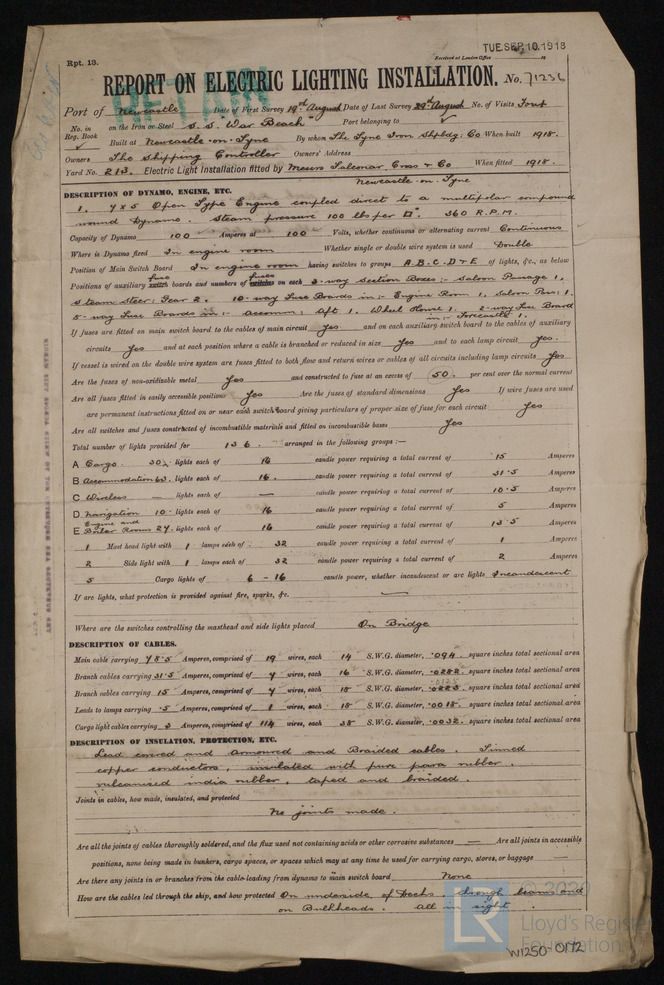 Rpt. 13.
TUE. SEP. 10. 1918
Received at London Office
RETAIN
REPORT ON ELECTRIC LIGHTING INSTALLATION. No. 71236
Port of Newcastle Date of First Survey 19th August Date of Last Survey 29th August No. of Visits Four
No. in Reg. Book on the Iron or Steel S.S. "War Beach" Port belonging to
Built at Newcastle-on-Tyne By whom The Tyne Iron Shpbdg: Co When built 1918.
Owners The Shipping Controller Owners' Address
Yard No. 213. Electric Light Installation fitted by Messrs Falconar, Cross & Co When fitted 1918.
Newcastle-on-Tyne
DESCRIPTION OF DYNAMO, ENGINE, ETC.
1. 7 x 5 Open Type Engine coupled direct to a multipolar compound
wound Dynamo. Steam pressure 100 lbs per □". 360 R.P.M.
Capacity of Dynamo 100 Amperes at 100 Volts, whether continuous or alternating current Continuous
Where is Dynamo fixed In engine room Whether single or double wire system is used Double
Position of Main Switch Board In engine room having switches to groups A.B.C.D & E of lights, &c., as below
Positions of auxiliary fuse boards and numbers of fuses on each 3-way Section Boxes:- Saloon Passage 1,
Steam Steer: Gear 2. 10-way Fuse Boards in:- Engine Room 1, Saloon Pass: 1.
5-way Fuse Boards in:- Accomm: Aft 1. Wheel House 1. 2-way Fuse Board
in:- Forecastle 1.
If fuses are fitted on main switch board to the cables of main circuit Yes and on each auxiliary switch board to the cables of auxiliary
circuits Yes and at each position where a cable is branched or reduced in size Yes and to each lamp circuit Yes.
If vessel is wired on the double wire system are fuses fitted to both flow and return wires or cables of all circuits including lamp circuits Yes
Are the fuses of non-oxidizable metal Yes and constructed to fuse at an excess of 50. per cent over the normal current
Are all fuses fitted in easily accessible positions Yes Are the fuses of standard dimensions Yes If wire fuses are used
are permanent instructions fitted on or near each switch board giving particulars of proper size of fuse for each circuit Yes
Are all switches and fuses constructed of incombustible materials and fitted on incombustible bases Yes
Total number of lights provided for 136. arranged in the following groups :—
A Cargo. 30 lights each of 16 candle power requiring a total current of 15 Amperes
B Accommodation 63. lights each of 16. candle power requiring a total current of 31.5 Amperes
C Wireless — lights each of — candle power requiring a total current of 10.5 Amperes
D Navigation 10. lights each of 16 candle power requiring a total current of 5 Amperes
E Engine and Boiler Rooms 27. lights each of 16 candle power requiring a total current of 13.5 Amperes
1 Mast head light with 1 lamps each of 32 candle power requiring a total current of 1 Amperes
2 Side light with 1 lamps each of 32 candle power requiring a total current of 2 Amperes
5 Cargo lights of 6 - 16 candle power, whether incandescent or arc lights Incandescent
If arc lights, what protection is provided against fire, sparks, &c. —
Where are the switches controlling the masthead and side lights placed On Bridge
DESCRIPTION OF CABLES.
Main cable carrying 78.5 Amperes, comprised of 19 wires, each 14 S.W.G. diameter, .094 square inches total sectional area
Branch cables carrying 31.5 Amperes, comprised of 7 wires, each 16 S.W.G. diameter, .0222 square inches total sectional area
Branch cables carrying 15 Amperes, comprised of 7 wires, each 18 S.W.G. diameter, square inches total sectional area
Leads to lamps carrying .5 Amperes, comprised of 1 wires, each 18 S.W.G. diameter, .0018 square inches total sectional area
Cargo light cables carrying 3 Amperes, comprised of 114 wires, each 38 S.W.G. diameter, .0032 square inches total sectional area
DESCRIPTION OF INSULATION, PROTECTION, ETC.
Lead covered and Armoured and Braided cables. Tinned
copper conductors, insulated with pure para rubber,
vulcanised india rubber, taped and braided.
Joints in cables, how made, insulated, and protected
No joints made.
Are all the joints of cables thoroughly soldered, and the flux used not containing acids or other corrosive substances — Are all joints in accessible
positions, none being made in bunkers, cargo spaces, or spaces which may at any time be used for carrying cargo, stores, or baggage —
Are there any joints in or branches from the cable leading from dynamo to main switch board None
How are the cables led through the ship, and how protected On underside of Decks. through beams and
on Bulkheads. All in sight.
© 2020
LR
Lloyd's Register
Foundation
W1250-0172